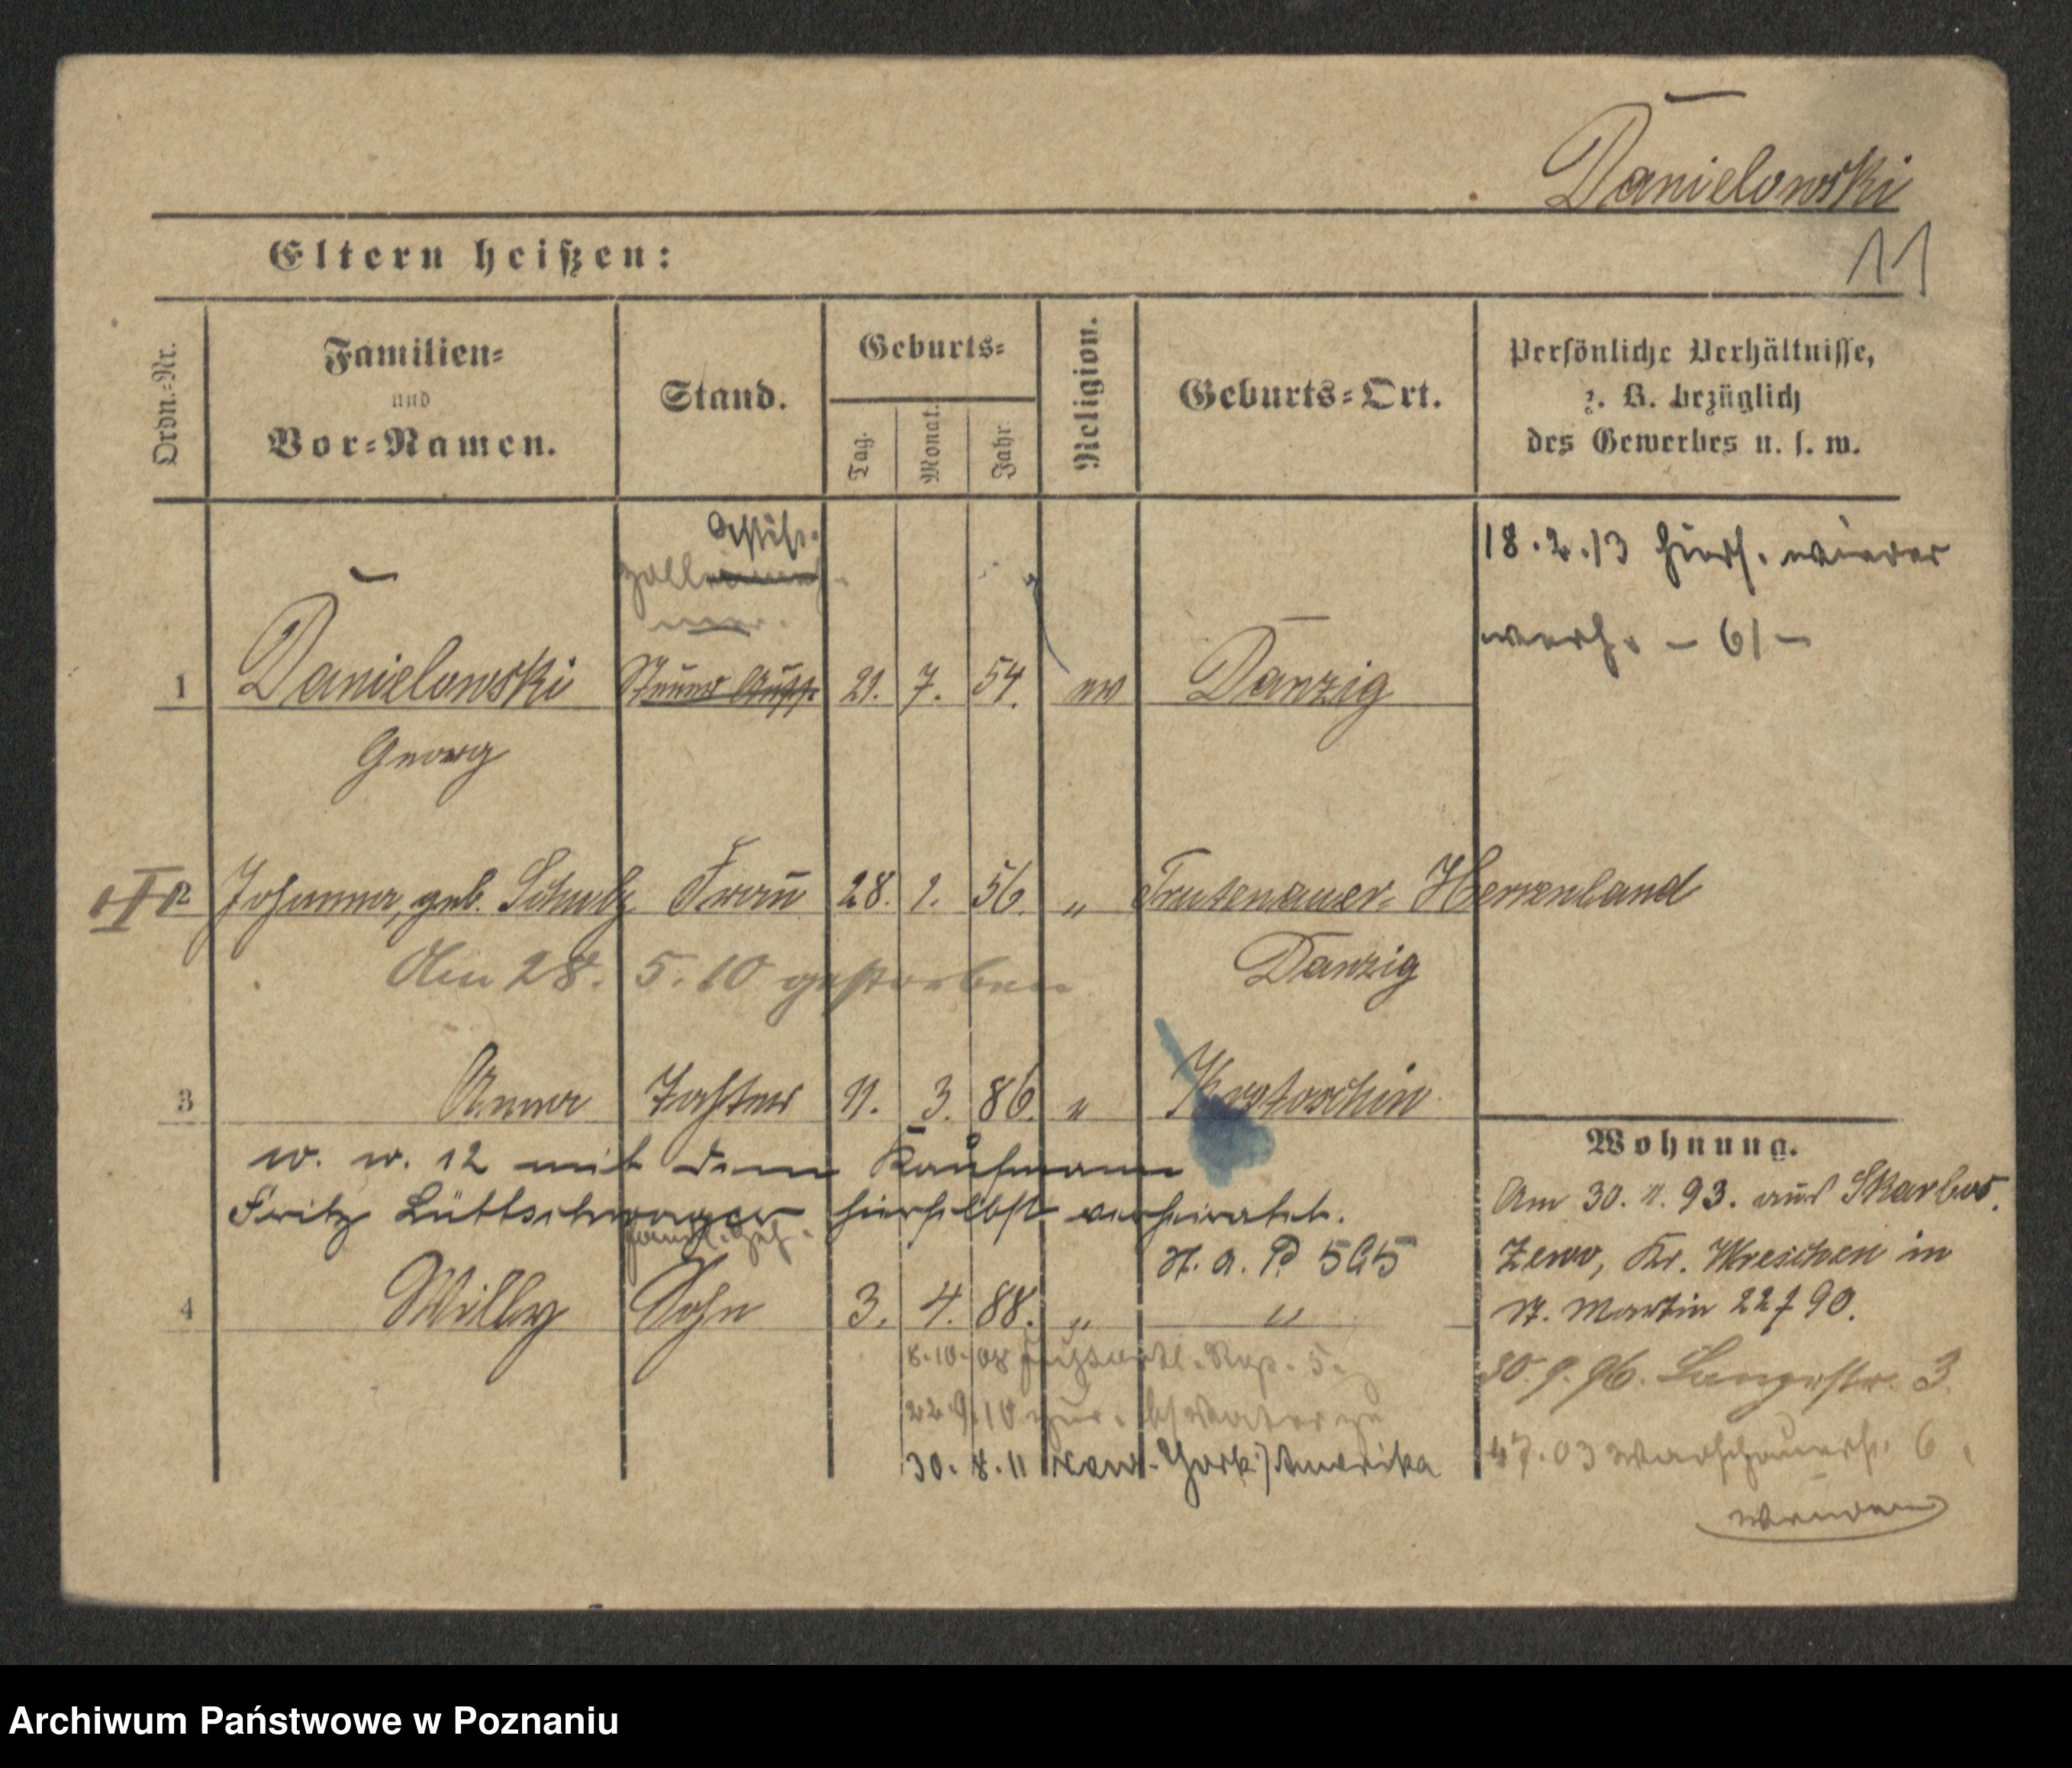 Danielowski
11
Eltern heißen:
Ordn.-Nr.
Familien-
und
Vor-Namen.
Stand.
Geburts-
Tag.
Monat.
Jahr.
Religion.
Geburts-Ort.
Persönliche Verhältnisse,
z. B. bezüglich
des Gewerbes u. s. w.
18.2.13 hier. wieder
verh. - 61 -
1 Danielowski Steuer Aufs. 21. 7. 54. ev Danzig
Georg
2 Johanna, geb. Schulz Frau 28. 1. 56. „ Trutenauer-Herrenland
Danzig
den 28. 5. 10 gestorben
3 Anna Tochter 11. 3. 86. „ Krotoschin
w. w. 12 mit dem Kaufmann
Fritz Lüttschwager hierselbst verheiratet.
H. a. P. 565
4 Willy Sohn 3. 4. 88. „ „
8.10.08 Fußartl. Rgt. 5.
22.9.10 zur.
30. 8. 11 New-York / Amerika
Wohnung.
Am 30. 11. 93. aus Skarbos.
zewo, Kr. Wreschen in
St. Martin 22 f 90.
30. 9. 96. Langestr. 3.
4 7. 03 Warschauerstr. 6
wenden
Archiwum Państwowe w Poznaniu